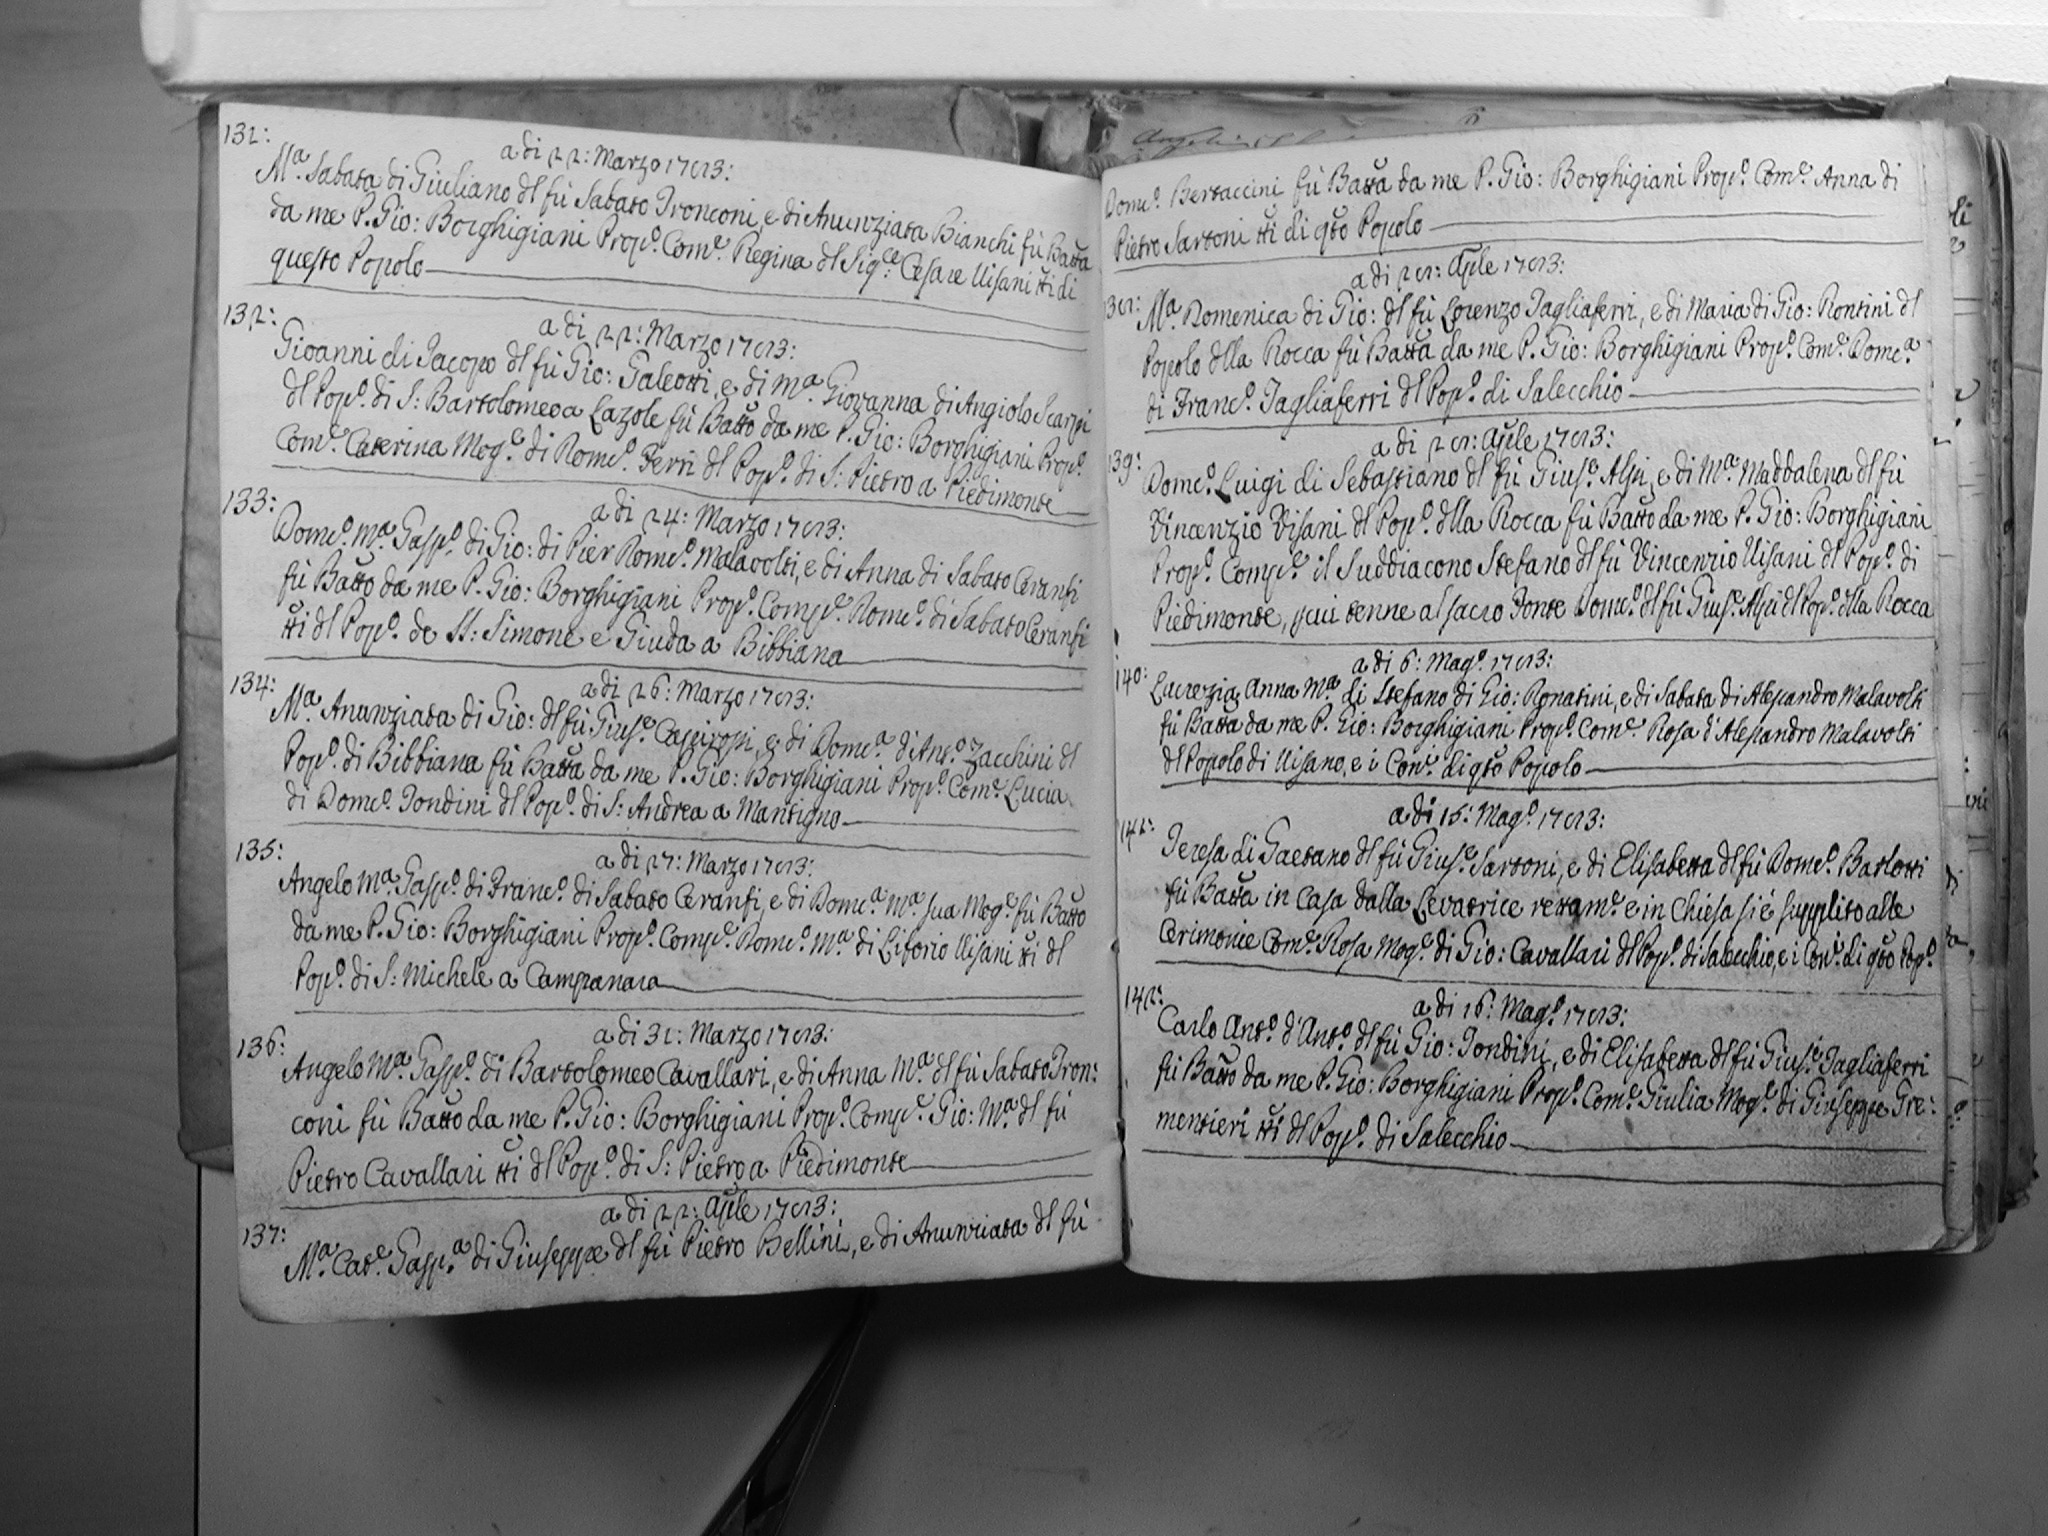 131:
a di 22: Marzo 1783:
Mª. Sabata di Giuliano dl fù Sabato Tronconi, e di Anunziata Bianchi fù Batta
da me P. Gio: Borghigiani Propº. Comᵉ. Regina dl Sigᵉ. Cesare Visani tti di
questo Popolo
132:
a di 22: Marzo 1783:
Gioanni di Jacopo dl fù Gio: Galeotti, e di Mª. Giovanna di Angiolo Scarpi
dl Popº. di S: Bartolomeo a Cazole fù Batto da me P. Gio: Borghigiani Propº.
Comᵉ. Caterina Mogᵉ. di Domcº. Ferri dl Popº. di S: Pietro a Piedimonte
133:
a di 24: Marzo 1783:
Domcº. Mª. Gaspº. di Gio: di Pier Domcº. Malavolti, e di Anna di Sabato Ceranfi
fù Batto da me P. Gio: Borghigiani Propº. Compᵉ. Domcº. di Sabato Ceranfi
tti dl Popº. de SS: Simone e Giuda a Bibbiana
134:
a di 26: Marzo 1783:
Mª. Anunziata di Gio: dl fù Giusᵉ. Capirossi, e di Domcª. d'Antº. Zacchini dl
Popº. di Bibbiana fù Batta da me P. Gio: Borghigiani Propº. Comᵉ. Lucia
di Domcº. Tondini dl Popº. di S: Andrea a Mantigno
135:
a di 27: Marzo 1783:
Angelo Mª. Gaspº. di Francº. di Sabato Ceranfi, e di Domcª. Mª. sua Mogᵉ. fù Batto
da me P. Gio: Borghigiani Propº. Compᵉ. Domcº. Mª. di Liborio Visani tti dl
Popº. di S: Michele a Campanara
136:
a di 31: Marzo 1783:
Angelo Mª. Gaspº. di Bartolomeo Cavallari, e di Anna Mª. dl fù Sabato Tron:
coni fù Batto da me P. Gio: Borghigiani Propº. Compᵉ. Gio: Mª. dl fù
Pietro Cavallari tti dl Popº. di S: Pietro a Piedimonte
137:
a di 22: Aple 1783:
Mª. Catᵉ. Gaspª. di Giuseppe dl fù Pietro Bellini, e di Anunziata dl fù
Domcº. Bertaccini fù Batta da me P. Gio: Borghigiani Propº. Comᵉ. Anna di
Pietro Sartoni tti di qto Popolo
a di 28: Aple 1783:
138:
Mª. Domenica di Gio: dl fù Lorenzo Tagliaferri, e di Maria di Gio: Rontini dl
Popolo dlla Rocca fù Batta da me P. Gio: Borghigiani Propº. Comᵉ. Domcª.
di Francº. Tagliaferri dl Popº. di Salecchio
a di 28: Aple 1783:
139:
Domcº. Luigi di Sebastiano dl fù Giusᵉ. Alpi, e di Mª. Maddalena dl fù
Vincenzio Visani dl Popº. dlla Rocca fù Batto da me P. Gio: Borghigiani
Propº. Compᵉ. il Suddiacono Stefano dl fù Vincenzio Visani dl Popº. di
Piedimonte, p cui tenne al sacro Fonte Domcº. dl fù Giusᵉ. Alpi dl Popº. dlla Rocca
a di 6: Magº. 1783:
140:
Lucrezia Anna Mª. di Stefano di Gio: Donatini, e di Sabata di Alessandro Malavolti
fù Batta da me P. Gio: Borghigiani Propº. Comᵉ. Rosa d'Alessandro Malavolti
dl Popolo di Visano, e i Conⁱ. di qto Popolo
a di 15: Magº. 1783:
141:
Teresa di Gaetano dl fù Giusᵉ. Sartoni, e di Elisabetta dl fù Domcº. Barlotti
fù Batta in Casa dalla Levatrice rettamᵉ. e in Chiesa si è supplito alle
Cerimonie Comᵉ. Rosa Mogᵉ. di Gio: Cavallari dl Popº. di Salecchio, e i Conⁱ. di qto Popº.
142:
a di 16: Magº. 1783:
Carlo Antº. d'Antº. dl fù Gio: Tondini, e di Elisabetta dl fù Giusᵉ. Tagliaferri
fù Batto da me P. Gio: Borghigiani Propº. Comᵉ. Giulia Mogᵉ. di Giuseppe Gre:
mentieri tti dl Popº. di Salecchio